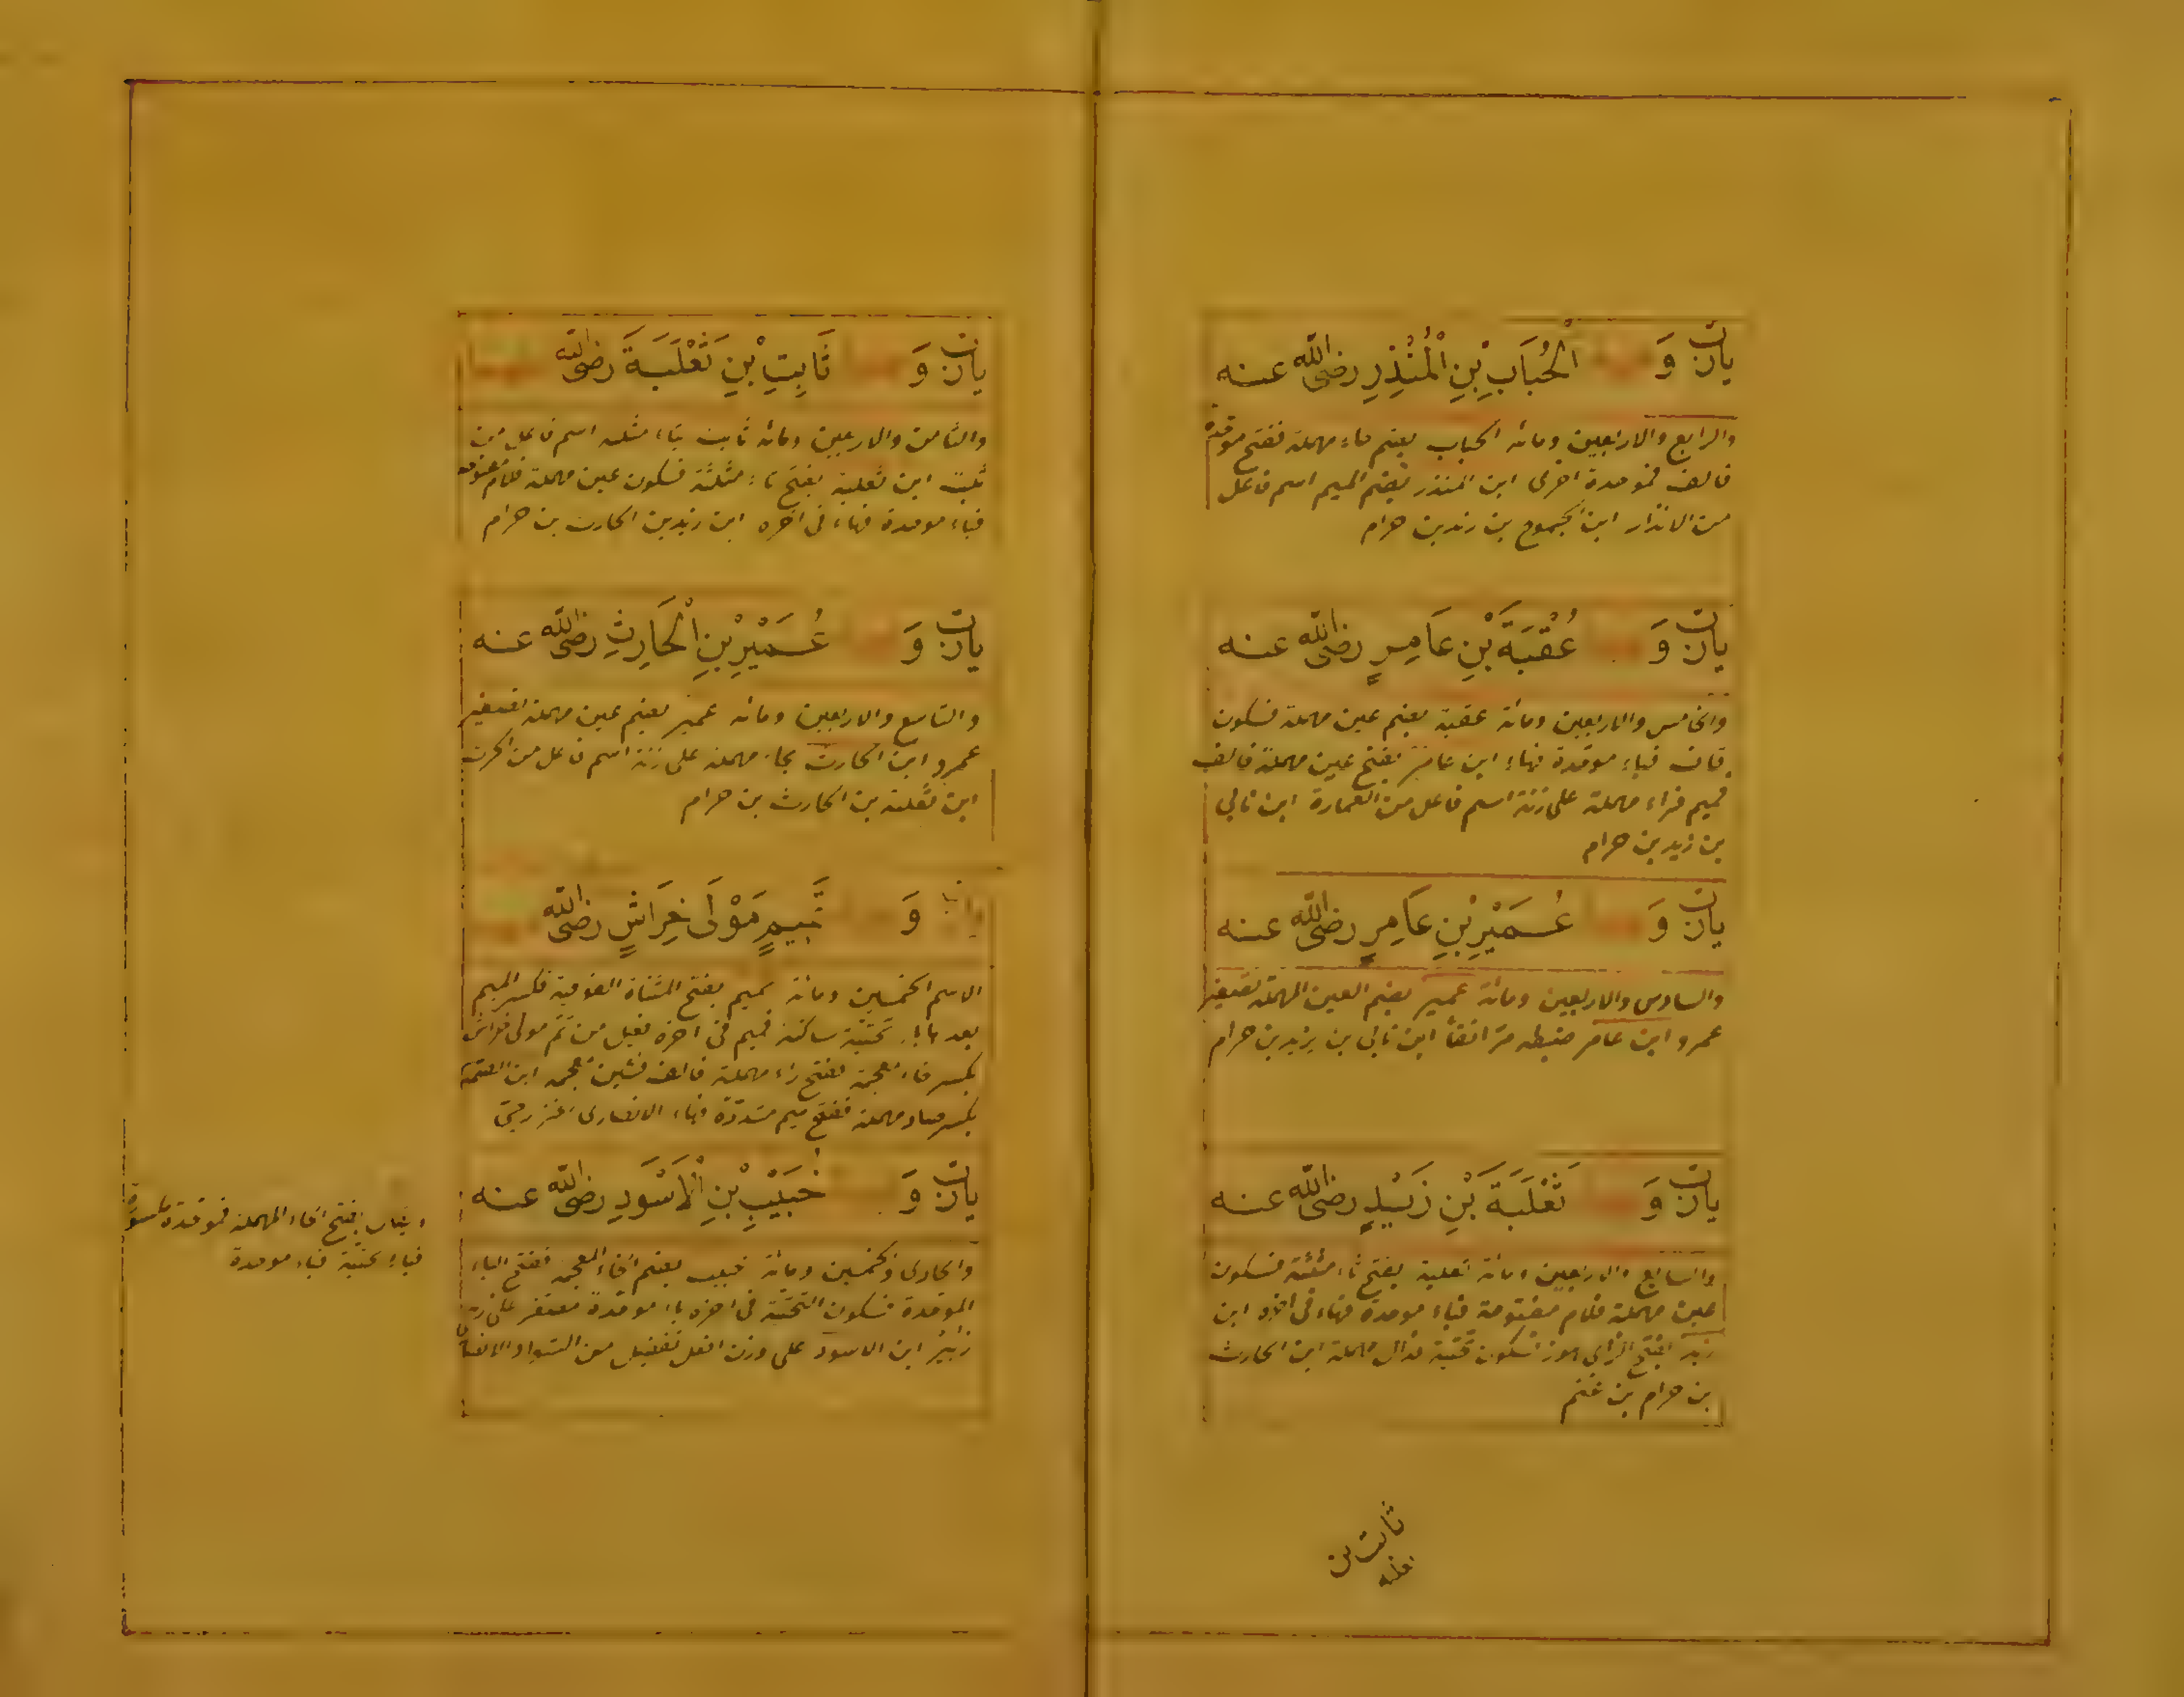 وَ الْحُبَابِ بْنِ الْمُنْذِرِ رضى الله عنه
والرابع والاربعين ومائه الحباب بضم حاء مهملة ففتح موحدة
فالف فموحدة اخرى ابن المنذر بضم الميم اسم فاعل
من الانذار ابن الجموح بن زيد بن حرام
وَ عُقْبَةَ بْنِ عَامِرٍ رضى الله عنه
والخامس والاربعين ومائة عقبة بضم عين مهملة فسكون
قاف فباء موحدة فهاء ابن عامر بفتح عين مهملة فالف
فميم فراء مهملة على زنة اسم فاعل من العمارة ابن نابي
بن زيد بن حرام
وَ عُمَيْرِ بْنِ عَامِرٍ رضى الله عنه
والسادس والاربعين ومائة عمير بضم العين المهملة تصغير
عمرو ابن عامر ضبطه مر انفا ابن نابي بن يزيد بن حرام
وَ ثَعْلَبَةَ بْنِ زَيْدٍ رضى الله عنه
والسابع والاربعين ومائة ثعلبة بفتح ثاء مثلثة فسكون
عين مهملة فلام مفتوحة فباء موحدة فهاء فى اخره ابن
زيد بفتح الزاي فسكون تحتية فدال مهملة ابن الحارث
بن حرام بن غنم
ثابت بن
ثعلبه
وَ ثَابِتِ بْنِ ثَعْلَبَةَ رضى الله
والثامن والاربعين ومائه ثابت بثاء مثلثه اسم فاعل من
ثبت ابن ثعلبة بفتح ثاء مثلثة فسكون عين مهملة فلام مفتوحه
فباء موحدة فهاء فى اخره ابن زيد بن الحارث بن حرام
وَ عُمَيْرِ بْنِ الْحَارِثِ رضى الله عنه
والتاسع والاربعين ومائه عمير بضم عين مهملة تصغير
عمرو ابن الحارث بحاء مهملة على زنة اسم فاعل من الحرث
ابن ثعلبة بن الحارث بن حرام
وَ تَمِيمٍ مَوْلَى خِرَاشٍ رضى الله
الاسم الخمسين ومائة تميم بفتح المثناة الفوقية فكسر الميم
بعدها ياء تحتية ساكنة فميم فى اخره فعيل من تم مولى خراش
بكسر خاء معجمة ففتح راء مهملة فالف فشين معجمه ابن الصمة
بكسر صاد مهملة ففتح ميم مشددة فهاء الانصارى
وَ خُبَيْبِ بْنِ الْاَسْوَدِ رضى الله عنه
والحادى والخمسين ومائة خبيب بضم الخاء المعجمه ففتح الباء
الموحدة فسكون التحتية فى اخره باء موحدة مصغر على زنة
زبير ابن الاسود على وزن افعل تفضيل من السواد الانصارى
بفتح الحاء المهملة فموحدة مكسورة
فياء تحتية فباء موحدة